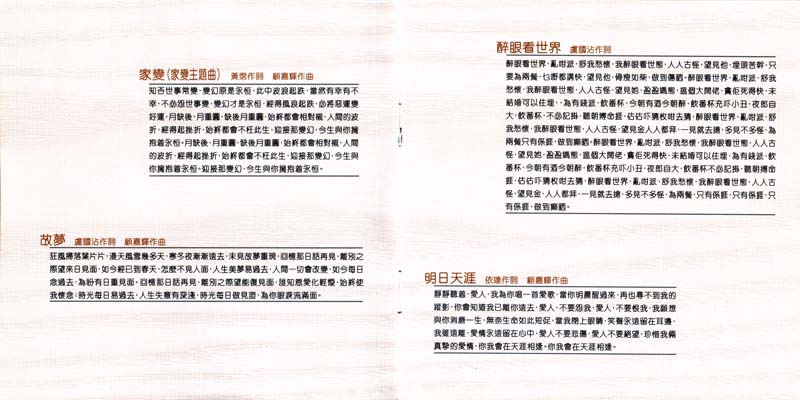 家變(家變主題曲) 黃霑作詞 顧嘉輝作曲
知否世事常變,變幻原是永恆,此中波浪起跌,當然有幸有不
幸,不必怨世事變,變幻才是永恆,經得風浪起跌,必將惡運變
好運,月缺後,月重圓,缺後月重圓,始終都會相對襯,人間的波
折,經得起挫折,始終都會不枉此生,迎接那變幻,今生與你擁
抱着永恆。月缺後,月重圓,缺後月重圓,始終都會相對襯,人間
的波折,經得起挫折,始終都會不枉此生,迎接那變幻,今生與
你擁抱着永恆。迎接那變幻,今生與你擁抱着永恆。
故夢 盧國沾作詞 顧嘉輝作曲
狂風掃落葉片片,漫天風雪幾多天,寒冬夜漸漸遠去,未見故夢重現,回憶那日話再見,離別之
際望來日見面,如今經已到春天,怎麼不見人面,人生美夢易過去,人間一切會改變,如今每日
念過去,為盼有日重見面。回憶那日話再見,離別之際望能復見面,誰知恩愛化輕煙,始終使
我懷念,時光每日易過去,人生失意有深淺,時光每日做見證,為你眼淚流滿面。
醉眼看世界 盧國沾作詞
醉眼看世界,亂咁派,舒我愁懷,我醉眼看世態,人人古怪,望見他,埋頭苦幹,只
要為兩餐,乜嘢都講快,望見他,骨瘦如柴,做到傷晒,醉眼看世界,亂咁派,舒我
愁懷,我醉眼看世態,人人古怪,望見她,盈盈嬌態,這個大闊佬,賣佢死得快,未
結婚可以住埋,,為有錢派,飲番杯,今朝有酒今朝醉,飲番杯充吓小丑,夜郎自
大,飲番杯,不必記掛,聽朝搏命捱,估估吓猜枚咁去猜,醉眼看世界,亂咁派,舒
我愁懷,我醉眼看世態,人人古怪,望見金人人都拜,一見就去搶,多見不多怪,為
兩餐只有係捱,做到癲晒,醉眼看世界,亂咁派,舒我愁懷,我醉眼看世態,人人古
怪,望見她,盈盈嬌態,這個大闊佬,賣佢死得快,未結婚可以住埋,為有錢派,飲
番杯,今朝有酒今朝醉,飲番杯充吓小丑,夜郎自大,飲番杯不必記掛,聽朝搏命
捱,估估吓猜枚咁去猜,醉眼看世界,亂咁派,舒我愁懷,我醉眼看世態,人人古
怪,望見金,人人都拜,一見就去搶,多見不多怪,為兩餐,只有係捱,只有係捱,只
有係捱,做到癲晒。
明日天涯 依達作詞 顧嘉輝作曲
靜靜聽着,愛人,我為你唱一首愛歌,當你明晨醒過來,再也尋不到我的
蹤影,你會知道我已離你遠去,愛人,不要怨我,愛人,不要恨我,我願想
與你消磨一生,無奈生命如此短促,當我閉上眼睛,笑聲永遠留在耳邊,
我雖遠離,愛情永遠留在心中,愛人不要悲傷,愛人不要絕望,珍惜我倆
真摯的愛情,你我會在天涯相逢。你我會在天涯相逢。